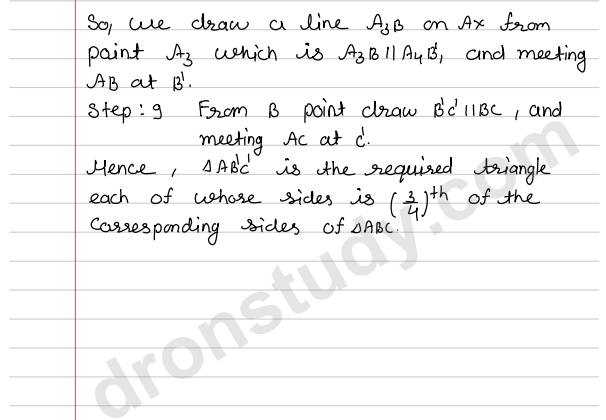 So, we draw a line A₃B on AX from
point A₃ which is A₃B || A₄B', and meeting
AB at B'.
Step: 9 From B point draw B'C' || BC, and
meeting AC at C'.
Hence, △AB'C' is the required triangle
each of whose sides is (3/4)th of the
Corresponding sides of △ABC.
dronstudy.com